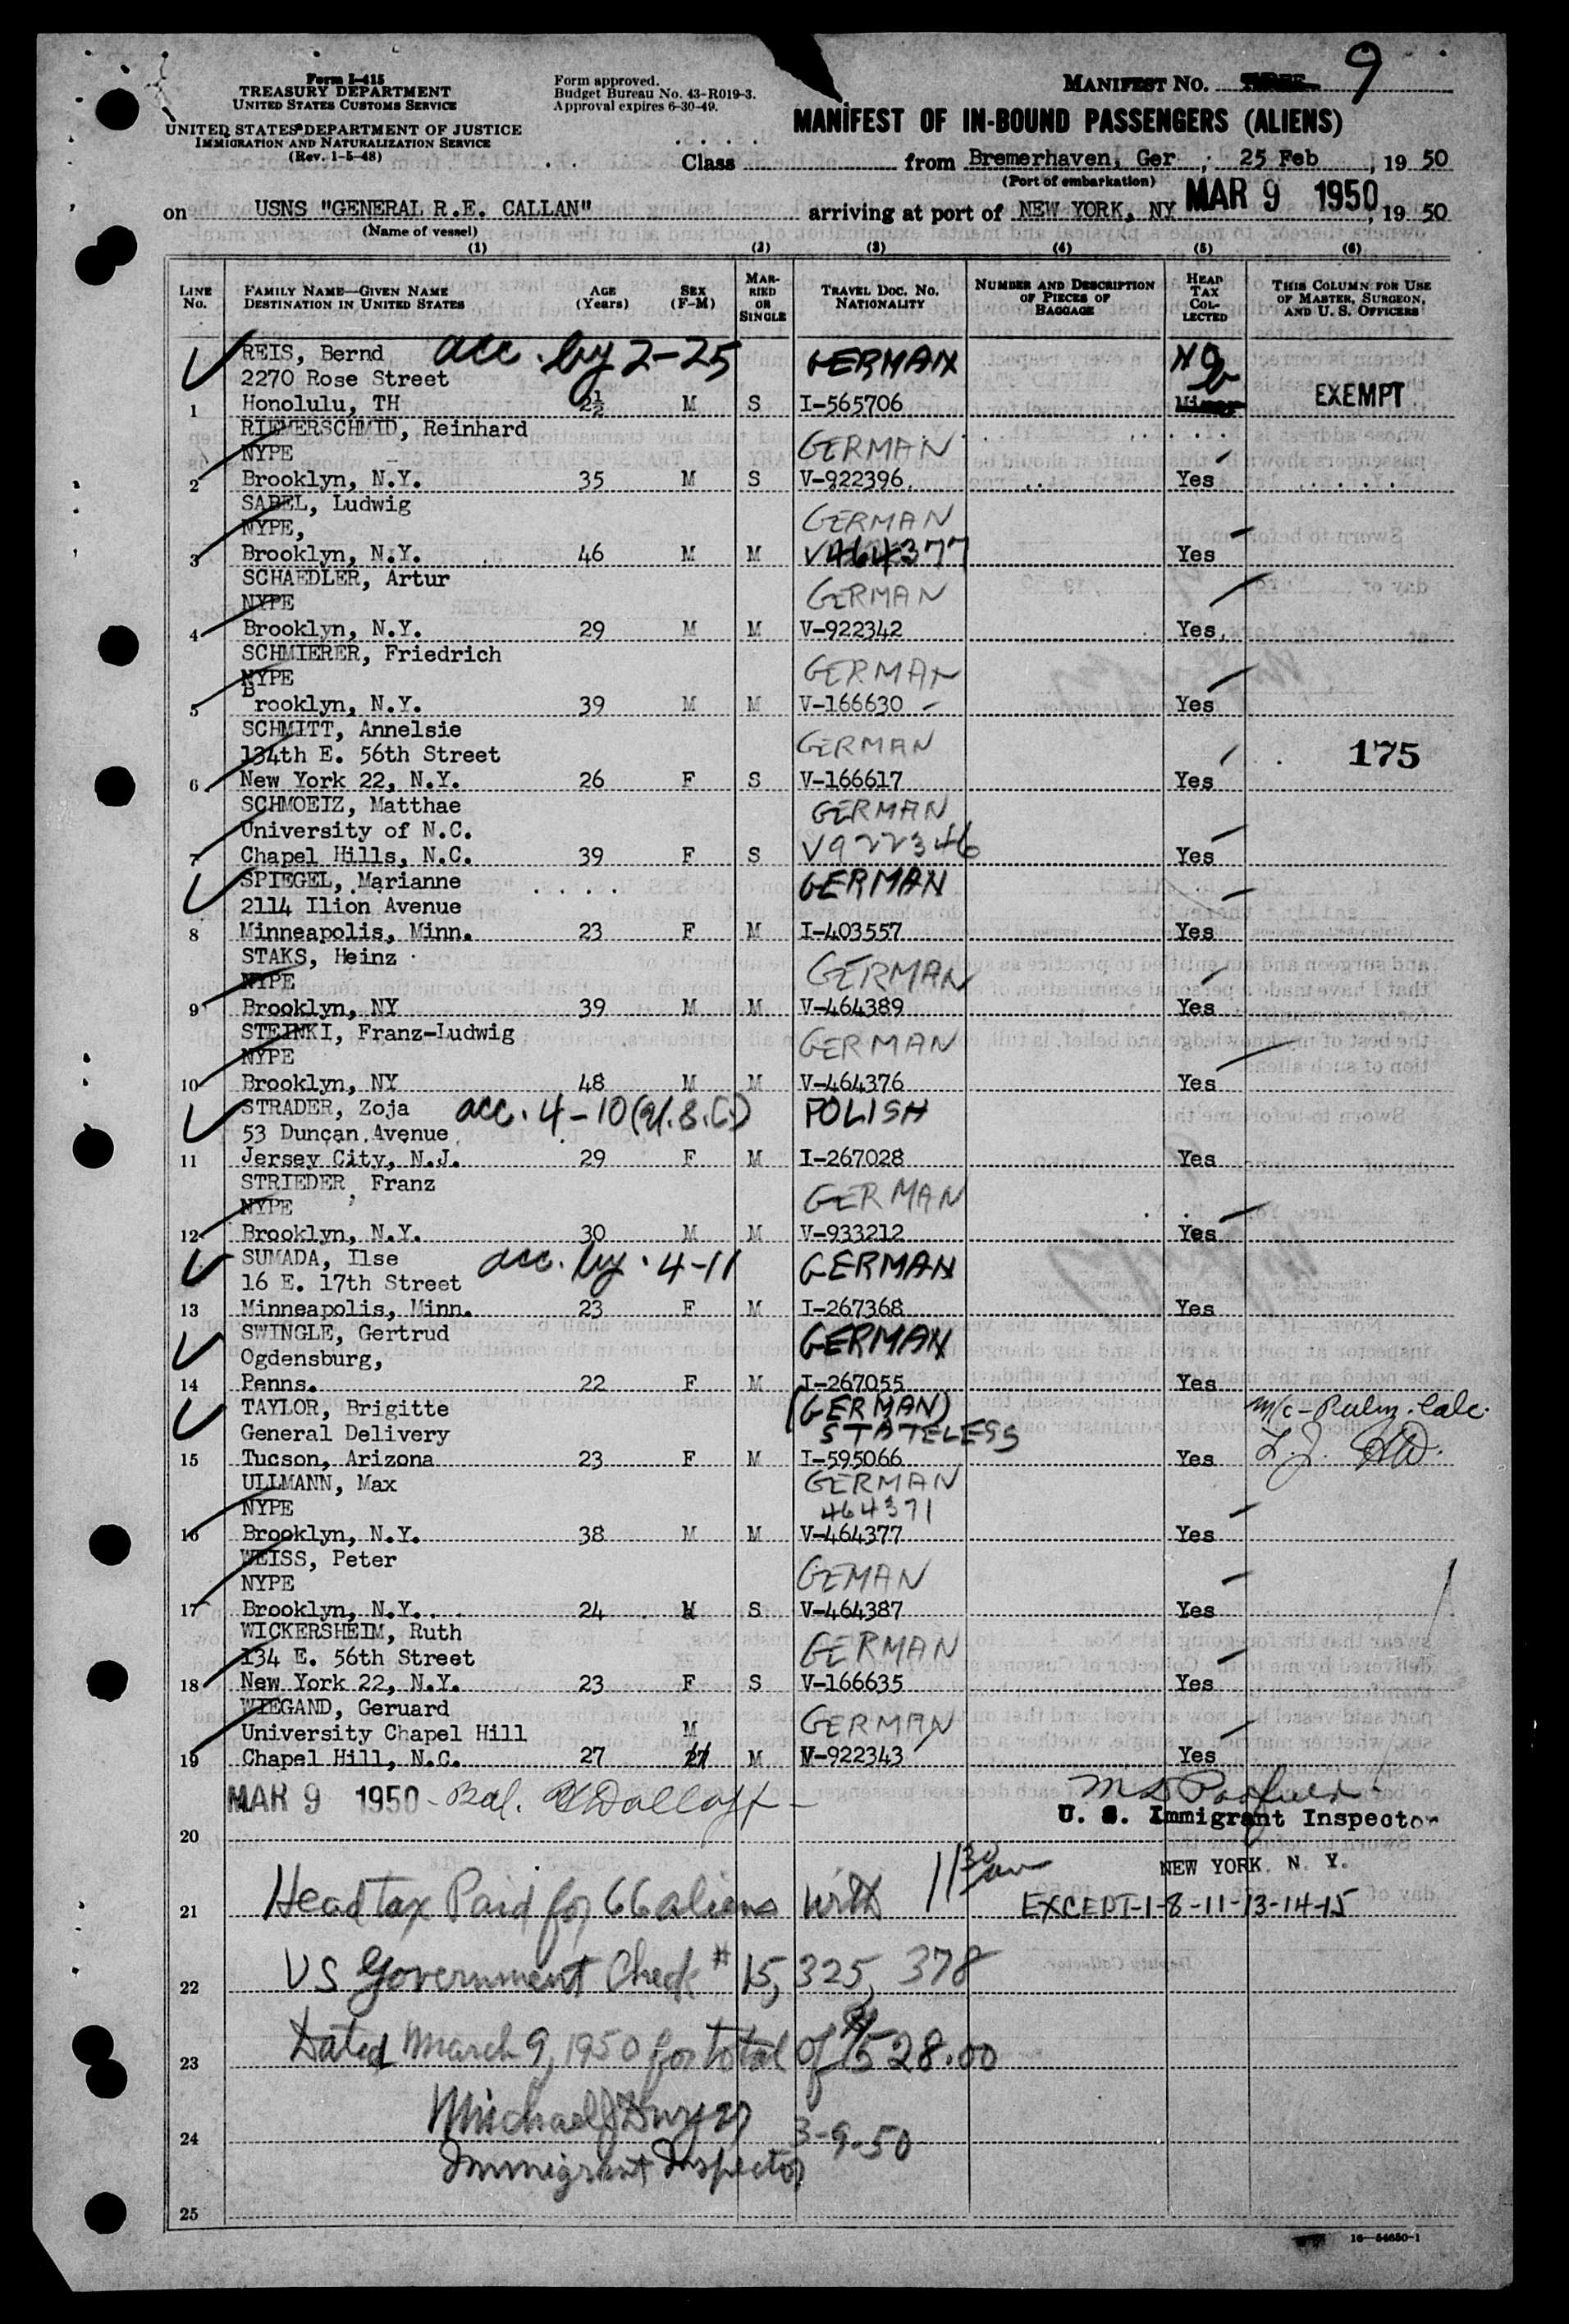 Form I-415
TREASURY DEPARTMENT
UNITED STATES CUSTOMS SERVICE
UNITED STATES DEPARTMENT OF JUSTICE
IMMIGRATION AND NATURALIZATION SERVICE
(Rev. 1-5-48)
Form approved.
Budget Bureau No. 43-R019-3.
Approval expires 6-30-49.
MANIFEST NO. 9
MANIFEST OF IN-BOUND PASSENGERS (ALIENS)
Class from Bremerhaven, Ger , 25 Feb , 19 50
(Port of embarkation)
on USNS "GENERAL R.E. CALLAN" arriving at port of NEW YORK, NY MAR 9 1950, 19 50
(Name of vessel)
(1) (2) (3) (4) (5) (6)
LINE No. FAMILY NAME—GIVEN NAME DESTINATION IN UNITED STATES AGE (Years) SEX (F-M) MARRIED OR SINGLE TRAVEL DOC. NO. NATIONALITY NUMBER AND DESCRIPTION OF PIECES OF BAGGAGE HEAD TAX COLLECTED THIS COLUMN FOR USE OF MASTER, SURGEON, AND U. S. OFFICERS
REIS, Bernd acc. by 2-25 GERMAN NO
2270 Rose Street EXEMPT
1 Honolulu, TH 2½ M S I-565706 Minor
RIEMERSCHMID, Reinhard
NYPE GERMAN
2 Brooklyn, N.Y. 35 M S V-922396 Yes
SABEL, Ludwig
NYPE, GERMAN
3 Brooklyn, N.Y. 46 M M V464377 Yes
SCHAEDLER, Artur
NYPE GERMAN
4 Brooklyn, N.Y. 29 M M V-922342 Yes
SCHMIERER, Friedrich
NYPE GERMAN
5 Brooklyn, N.Y. 39 M M V-166630 Yes
SCHMITT, Annelsie
134th E. 56th Street GERMAN 175
6 New York 22, N.Y. 26 F S V-166617 Yes
SCHMOEIZ, Matthae GERMAN
University of N.C.
7 Chapel Hills, N.C. 39 F S V922346 Yes
SPIEGEL, Marianne GERMAN
2114 Ilion Avenue
8 Minneapolis, Minn. 23 F M I-403557 Yes
STAKS, Heinz
NYPE GERMAN
9 Brooklyn, NY 39 M M V-464389 Yes
STEINKI, Franz-Ludwig
NYPE GERMAN
10 Brooklyn, NY 48 M M V-464376 Yes
STRADER, Zoja acc. 4-10 (U.S.C.) POLISH
53 Duncan Avenue
11 Jersey City, N.J. 29 F M I-267028 Yes
STRIEDER, Franz
NYPE GERMAN
12 Brooklyn, N.Y. 30 M M V-933212 Yes
SUMADA, Ilse acc. by 4-11 GERMAN
16 E. 17th Street
13 Minneapolis, Minn. 23 F M I-267368 Yes
SWINGLE, Gertrud GERMAN
Ogdensburg,
14 Penns. 22 F M I-267055 Yes
TAYLOR, Brigitte (GERMAN)
General Delivery STATELESS
15 Tucson, Arizona 23 F M I-595066 Yes
ULLMANN, Max GERMAN
NYPE 464371
16 Brooklyn, N.Y. 38 M M V-464377 Yes
WEISS, Peter
NYPE GEMAN
17 Brooklyn, N.Y. 24 M S V-464387 Yes
WICKERSHEIM, Ruth
134 E. 56th Street GERMAN
18 New York 22, N.Y. 23 F S V-166635 Yes
WIEGAND, Geruard
University Chapel Hill M GERMAN
19 Chapel Hill, N.C. 27 27 M V-922343 Yes
MAR 9 1950
U. S. Immigrant Inspector
20
NEW YORK, N. Y.
21 Head tax Paid for 66 aliens with 11 30 am EXCEPT-1-8-11-13-14-15
22 US Government Check # 15,325,378
23 Dated March 9, 1950 for total of $528.00
24 Michael J Dwyer 3-9-50
Immigrant Inspector
25
16—54650-1